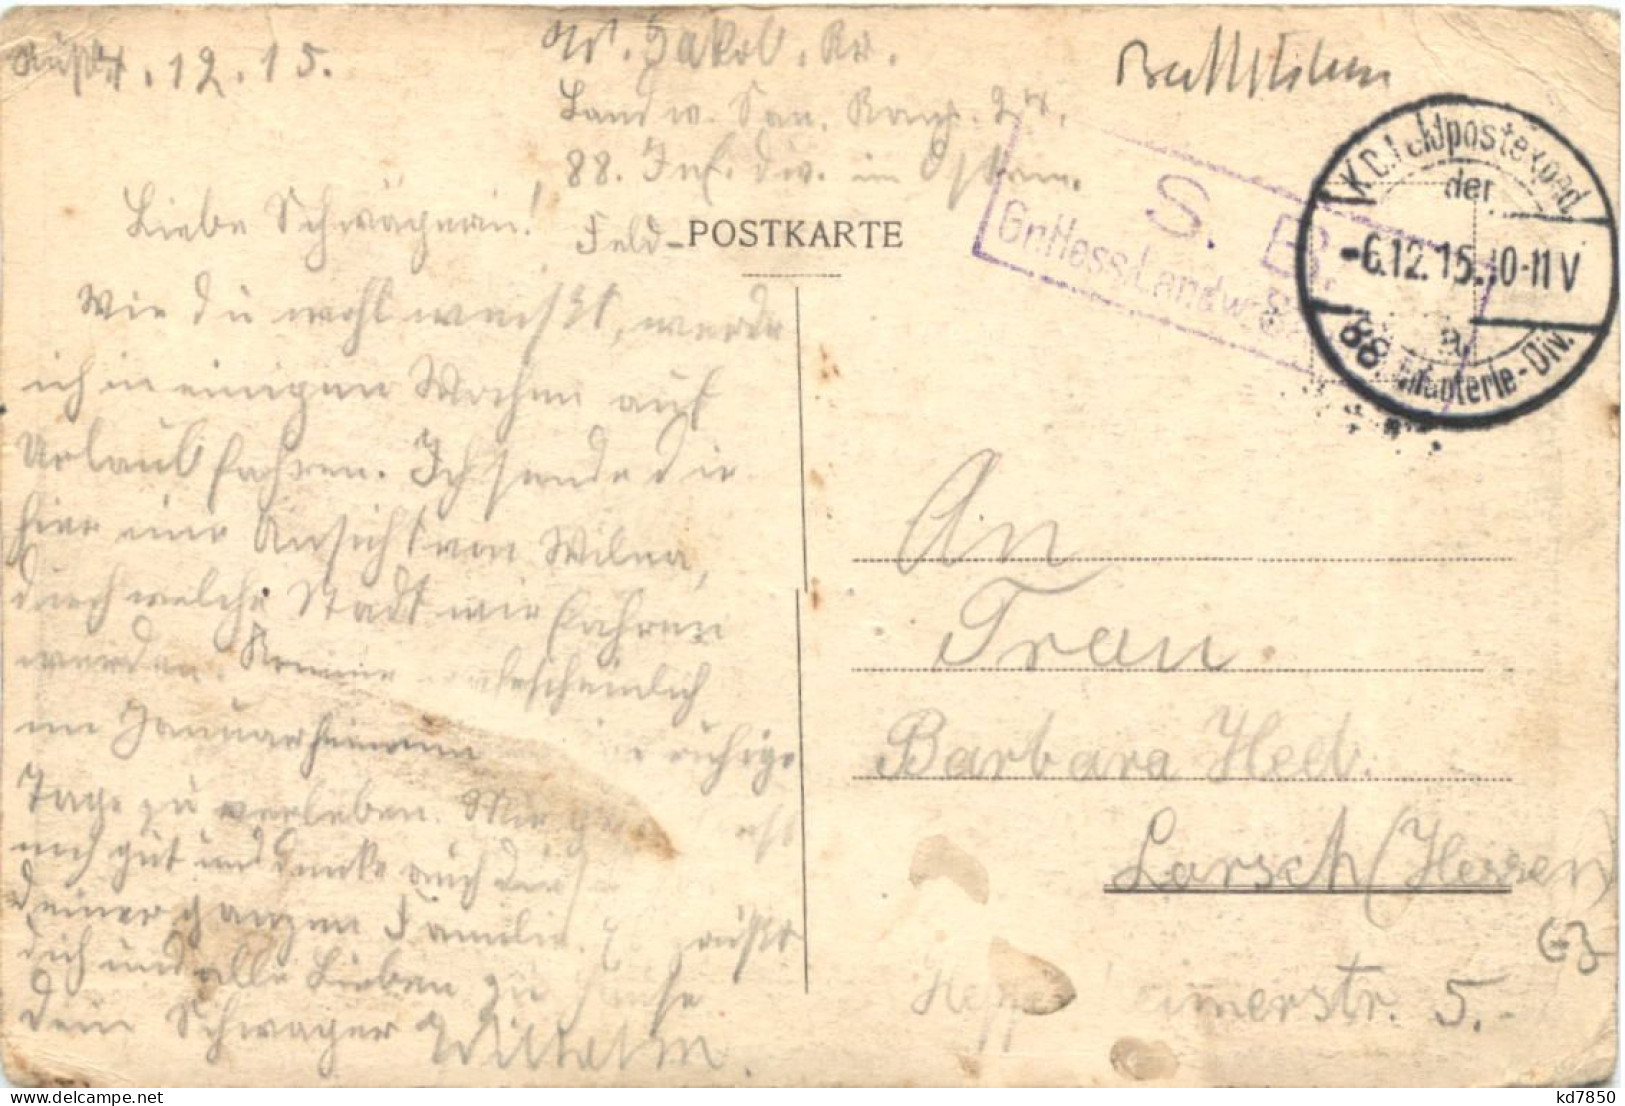 4.12.15.
Jakob.
Landw. San. Komp.
88. Inf. Div. im Osten.
Feld-POSTKARTE
S. B.
Gr. Hess. Landw.
K.D. Feldpostexped.
der
-6.12.15. 10-11 V
a.
88. Infanterie-Div.
Liebe Schwägerin!
Wie du wohl weißt, werde
ich in einigen Wochen auf
Urlaub fahren. Ich sende dir
hier eine Ansicht von Wilna,
durch welche Stadt wir fahren
werden. Komme wahrscheinlich
im Januar heim um ruhige
Tage zu verleben. Mir geht
noch gut und denke auch dir
deiner ganzen Familie. Es grüßt
dich und alle Lieben zu Hause
dein Schwager Wilhelm.
An
Frau.
Barbara
Lorsch (Hessen)
Heppenheimerstr. 5.-
63
kd7850